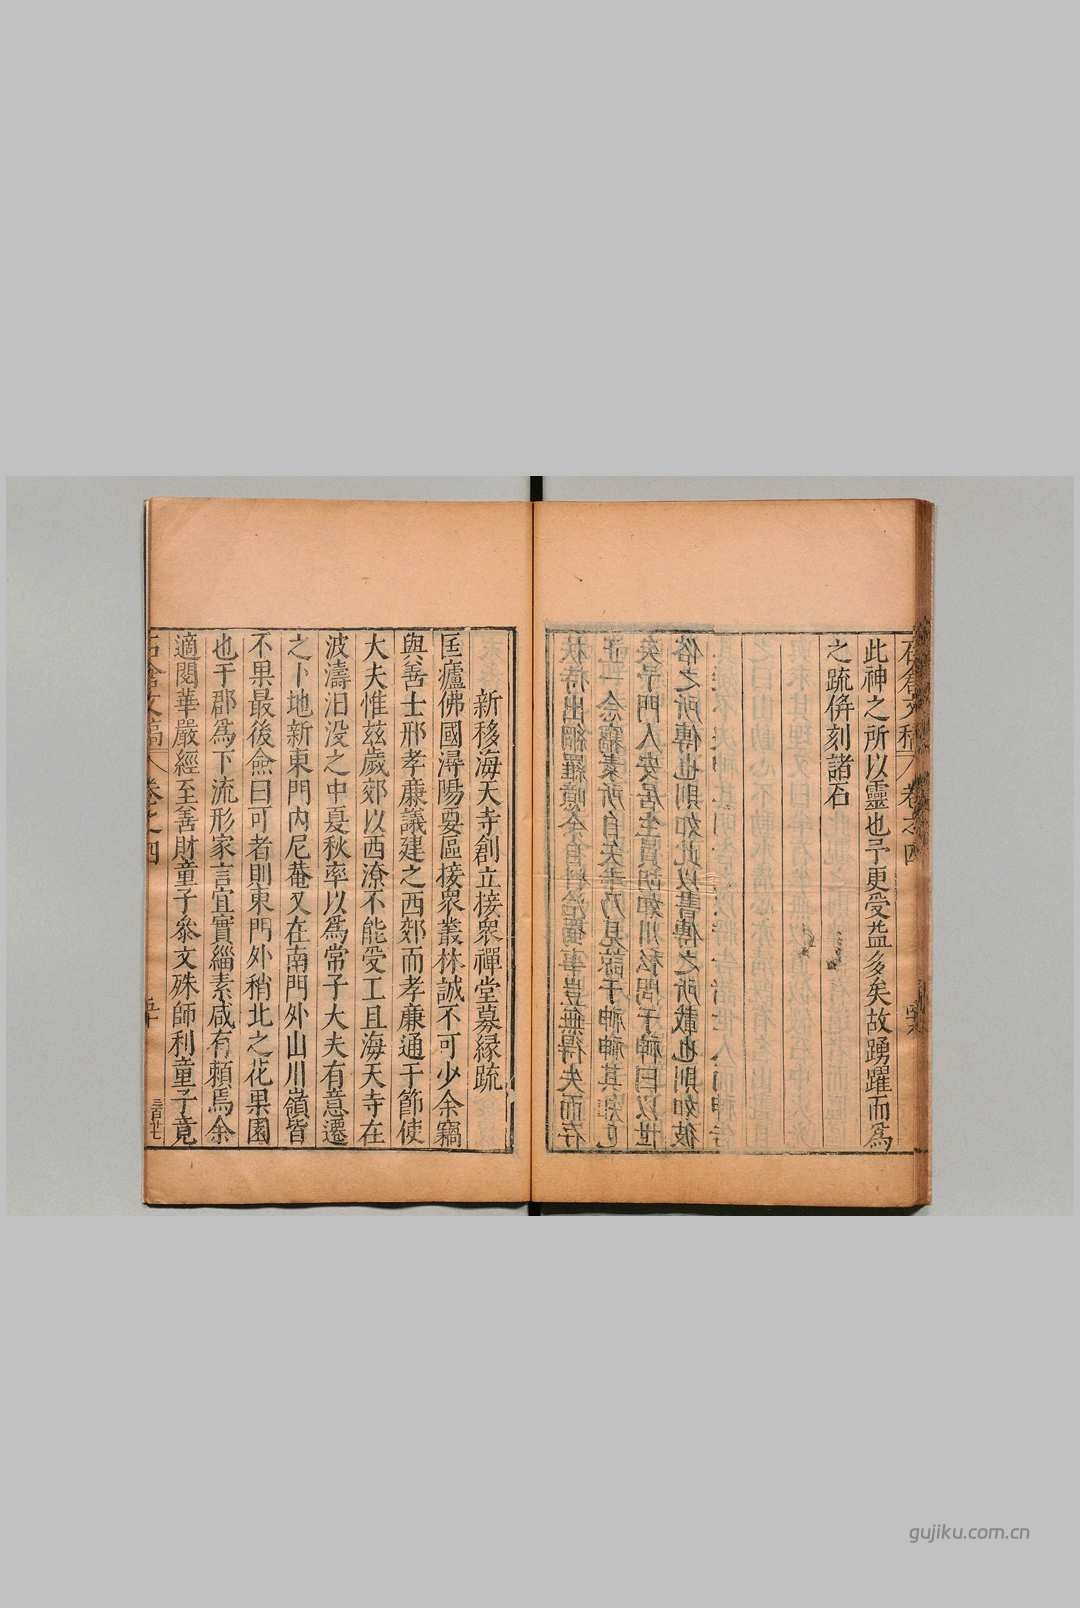 此神之所以靈也予更受益多矣故踴躍而為
之疏併刻諸石
新移海天寺創立接衆禪堂募緣疏
匡廬佛國潯陽要區接衆叢林誠不可少余竊
與善士邢孝亷議建之西郊而孝亷通于節使
大夫惟茲歲郊以西潦不能受工且海天寺在
波濤汨没之中夏秋率以為常子大夫有意遷
之卜地新東門內尼菴又在南門外山川嶺皆
不果最後僉曰可者則東門外稍北之花果園
也于郡為下流形家言宜實緇素咸有賴焉余
適閱華嚴經至善財童子叅文殊師利童子竟
石倉文稿 卷之四 五十
gujiku.com.cn